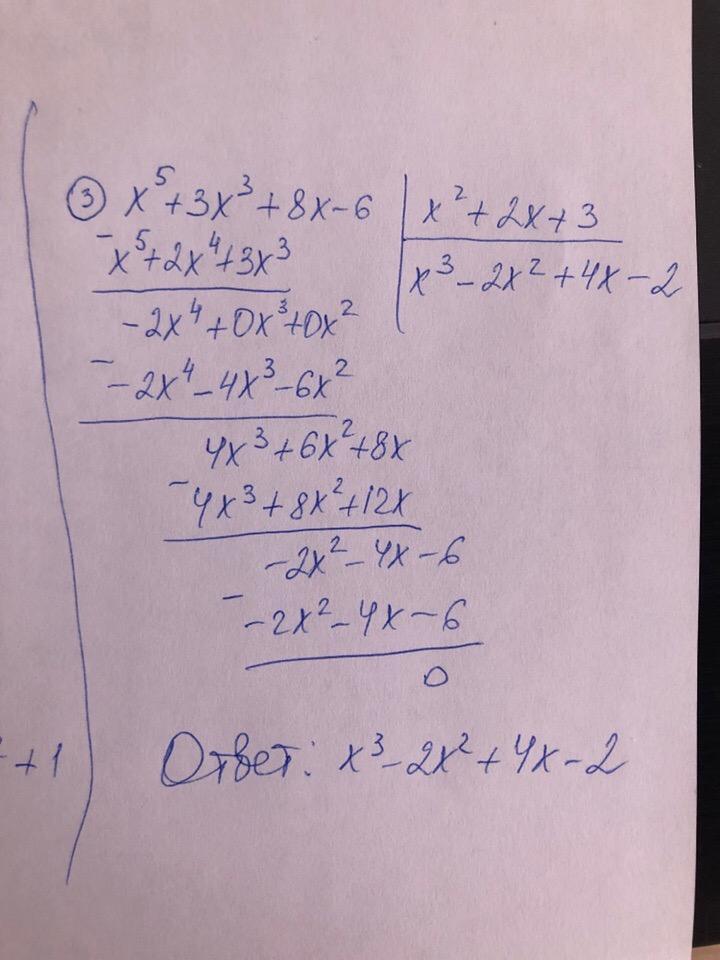 ③ x⁵+3x³+8x-6 | x²+2x+3
- x⁵+2x⁴+3x³ | x³-2x²+4x-2
-2x⁴+0x³+0x²
- -2x⁴-4x³-6x²
4x³+6x²+8x
- 4x³+8x²+12x
-2x²-4x-6
- -2x²-4x-6
0
+1
Ответ: x³-2x²+4x-2